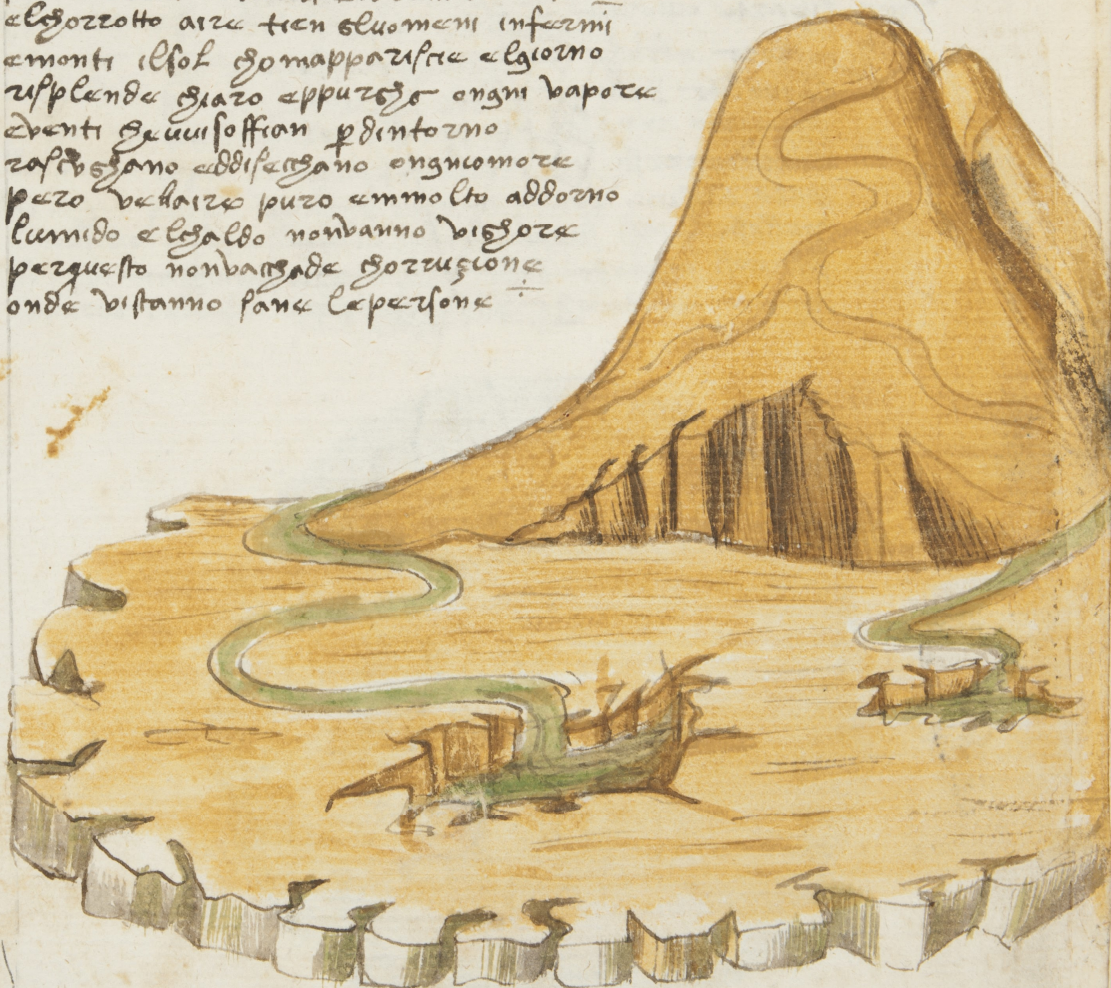 elchorrotto aire tien gluomeni infermi
emonti ilsol chomappariscie elgiorno
risplende chiaro eppurghe ongni vapore
eventi chevvisoffian p dintorno
rascughano eddisecchano ongniomore
pero vehaire puro emmolto addorno
lumido elchaldo nonvanno vighore
perquesto nonvacchade chorruzione
onde vistanno sane lepersone